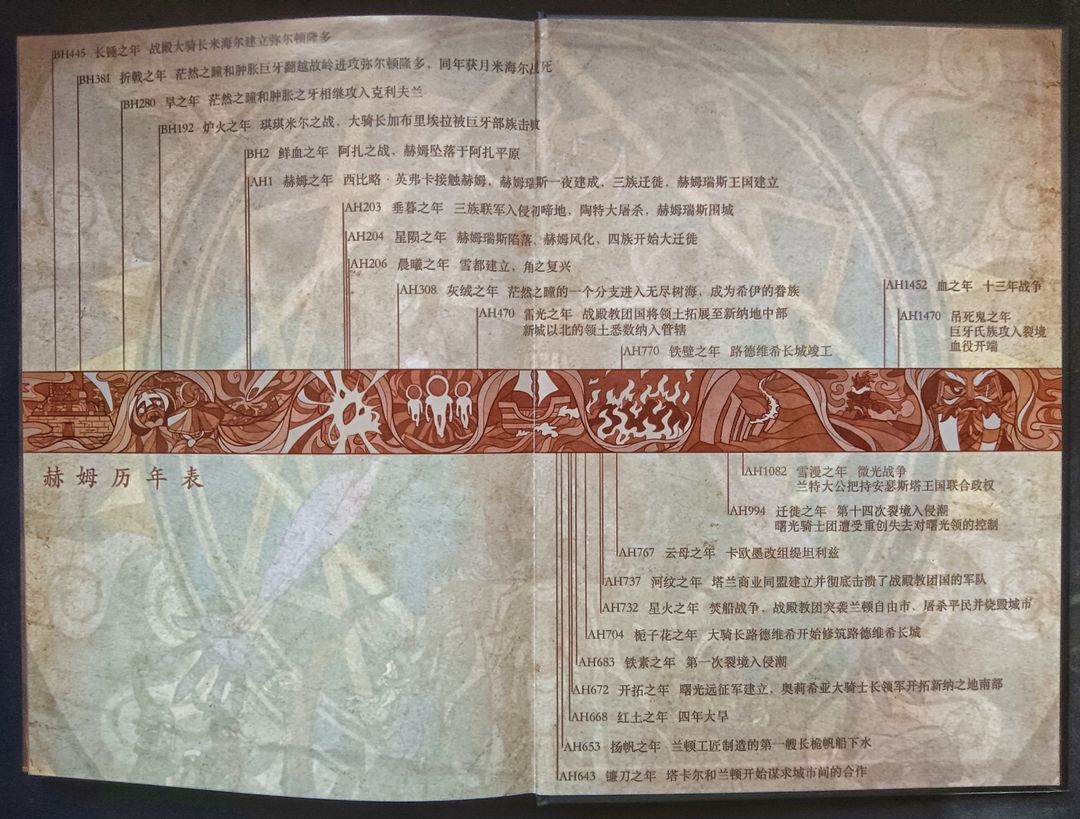 BH445 长锤之年 战殿大骑长米海尔建立弥尔顿隆多
BH381 折戟之年 茫然之瞳和肿胀巨牙翻越故岭进攻弥尔顿隆多，同年获月米海尔战死
BH280 旱之年 茫然之瞳和肿胀之牙相继攻入克利夫兰
BH192 炉火之年 琪琪米尔之战、大骑长加布里埃拉被巨牙部族击败
BH2 鲜血之年 阿扎之战，赫姆坠落于阿扎平原
AH1 赫姆之年 西比略·英弗卡接触赫姆，赫姆瑞斯一夜建成，三族迁徙，赫姆瑞斯王国建立
AH203 垂暮之年 三族联军入侵初啼地，陶特大屠杀，赫姆瑞斯围城
AH204 星陨之年 赫姆瑞斯陷落、赫姆风化，四族开始大迁徙
AH206 晨曦之年 雪都建立，角之复兴
AH308 灰绒之年 茫然之瞳的一个分支进入无尽树海，成为希伊的眷族
AH1452 血之年 十三年战争
AH470 雷光之年 战殿教团国将领土拓展至新纳地中部
新城以北的领土悉数纳入管辖
AH1470 吊死鬼之年
巨牙氏族攻入裂境
血役开端
AH770 铁壁之年 路德维希长城竣工
赫姆历年表
AH1082 雪漫之年 微光战争
兰特大公把持安瑟斯塔王国联合政权
AH994 迁徙之年 第十四次裂境入侵潮
曙光骑士团遭受重创失去对曙光领的控制
AH767 云母之年 卡欧墨改组缇坦利兹
AH737 河纹之年 塔兰商业同盟建立并彻底击溃了战殿教团国的军队
AH732 星火之年 焚船战争，战殿教团突袭兰顿自由市、屠杀平民并烧毁城市
AH704 栀子花之年 大骑长路德维希开始修筑路德维希长城
AH683 铁素之年 第一次裂境入侵潮
AH672 开拓之年 曙光远征军建立，奥莉希亚大骑士长领军开拓新纳之地南部
AH668 红土之年 四年大旱
AH653 扬帆之年 兰顿工匠制造的第一艘长桅帆船下水
AH643 镰刀之年 塔卡尔和兰顿开始谋求城市间的合作